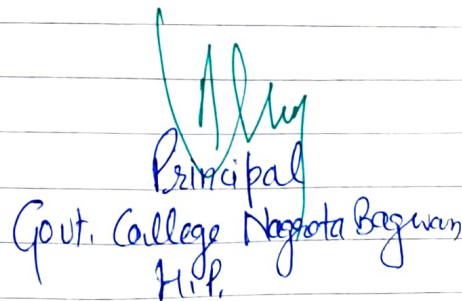 Principal
Govt. College Nagrota Bagwan
H.P.